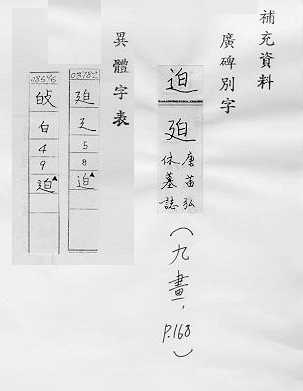 補充資料
廣碑別字
迫
廹
唐苗弘
休墓誌
（九畫，P.168）
異體字表
03782
廹
廴
5
8
迫▲
08546
白
4
9
迫▲